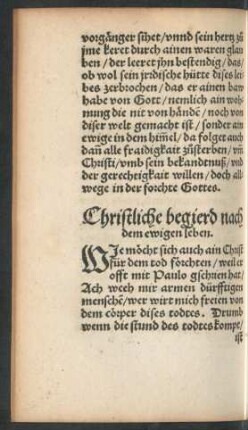 vorgänger sihet/vnnd sein hertz zů
jme keret durch ainen waren glau
ben/der leeret jhn bestendig/das/
ob wol sein jrdische hütte dises lei
bes zerbrochen/das er ainen baw
habe von Gott/nemlich ain woh
nung die nit von händē/noch von
diser welt gemacht ist/sonder ain
ewige in dem him̄el/da folget auch
dañ alle fraidigkait zůsterben/vm̄
Christi/vmb sein bekandtnuß/vnd
der gerechtigkait willen/doch all
wege in der forchte Gottes.
Christliche begierd nach
dem ewigen leben.
WJe möcht sich auch ain Christ
für dem tod förchten/weil er
offt mit Paulo gschrien hat/
Ach weeh mir armen dürfftigen
menschē/wer wirt mich freien von
dem cörper dises todtes. Drumb
wenn die stund des todtes kompt/
ist